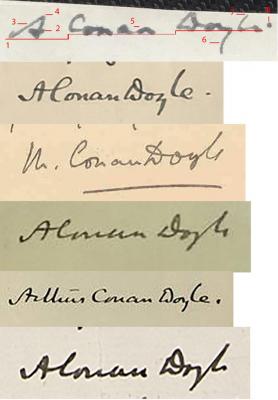 4
3
2
5
7
8
A Conan Doyle.
1
6
A Conan Doyle.
M. Conan Doyle
A Conan Doyle
Arthur Conan Doyle.
A Conan Doyle